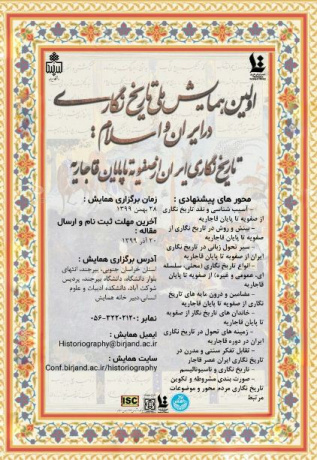 اولین همایش ملی تاریخ نگاری
در ایران و اسلام :
تاریخ نگاری ایران از صفویه تا پایان قاجاریه
محور های پیشنهادی :
- آسیب شناسی و نقد تاریخ نگاری
از صفویه تا پایان قاجاریه
- بینش و روش در تاریخ نگاری از
صفویه تا پایان قاجاریه
- سیر تحول زبانی در تاریخ نگاری
ایران از صفویه تا پایان قاجاریه
- انواع تاریخ نگاری (محلی، سلسله
ای، عمومی و غیره) از صفویه تا پایان
قاجاریه
- مضامین و درون مایه های تاریخ
نگاری از صفویه تا پایان قاجاریه
- خاندان های تاریخ نگار از صفویه
تا پایان قاجاریه
- زمینه های تحول در تاریخ نگاری
ایران در دوره قاجاریه
- تقابل تفکر سنتی و مدرن در
تاریخ نگاری ایران عصر قاجار
- تاریخ نگاری و ناسیونالیسم
- صورت بندی مشروطه و تکوین
تاریخ نگاری مردم محور و موضوعات
مرتبط
زمان برگزاری همایش :
۲۸ بهمن ۱۳۹۹
آخرین مهلت ثبت نام و ارسال
مقاله :
۲۰ آذر ۱۳۹۹
آدرس برگزاری همایش :
استان خراسان جنوبی، بیرجند، انتهای
بلوار دانشگاه، دانشگاه بیرجند، پردیس
شوکت آباد، دانشکده ادبیات و علوم
انسانی دبیر خانه همایش
نمابر : ۳۲۲۰۲۱۲۰-۰۵۶
ایمیل همایش :
Historiography@birjand.ac.ir
سایت همایش :
Conf.birjand.ac.ir/historiography
ISC